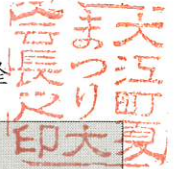 大江町夏
まつり大
会長之印